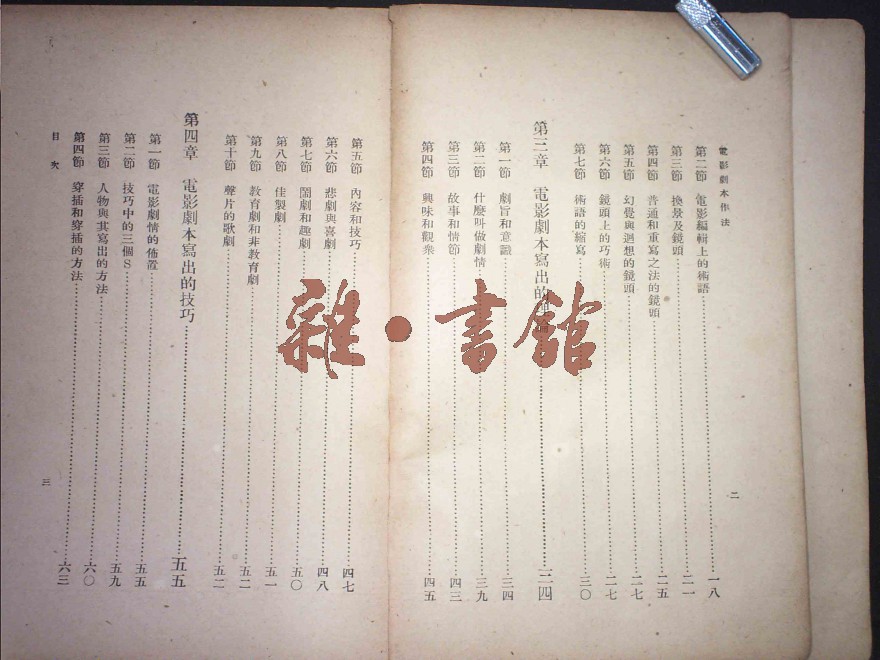 電影劇本作法
第二節　電影編輯上的術語……一八
第三節　換景及鏡頭……二一
第四節　普通和重寫之法的鏡頭……二五
第五節　幻覺與迴想的鏡頭……二七
第六節　鏡頭上的巧術……二七
第七節　術語的縮寫……三〇
第三章　電影劇本寫出的……三四
第一節　劇旨和意識……三四
第二節　什麼叫做劇情……三九
第三節　故事和情節……四三
第四節　興味和觀衆……四五
二
第五節　內容和技巧……四七
第六節　悲劇與喜劇……四八
第七節　鬧劇和趣劇……五〇
第八節　佳製劇……五一
第九節　教育劇和非教育劇……五二
第十節　聲片的歌劇……五二
第四章　電影劇本寫出的技巧……五五
第一節　電影劇情的佈置……五五
第二節　技巧中的三個S……五九
第三節　人物與其寫出的方法……六〇
第四節　穿插和穿插的方法……六三
目次
三
雜·書館